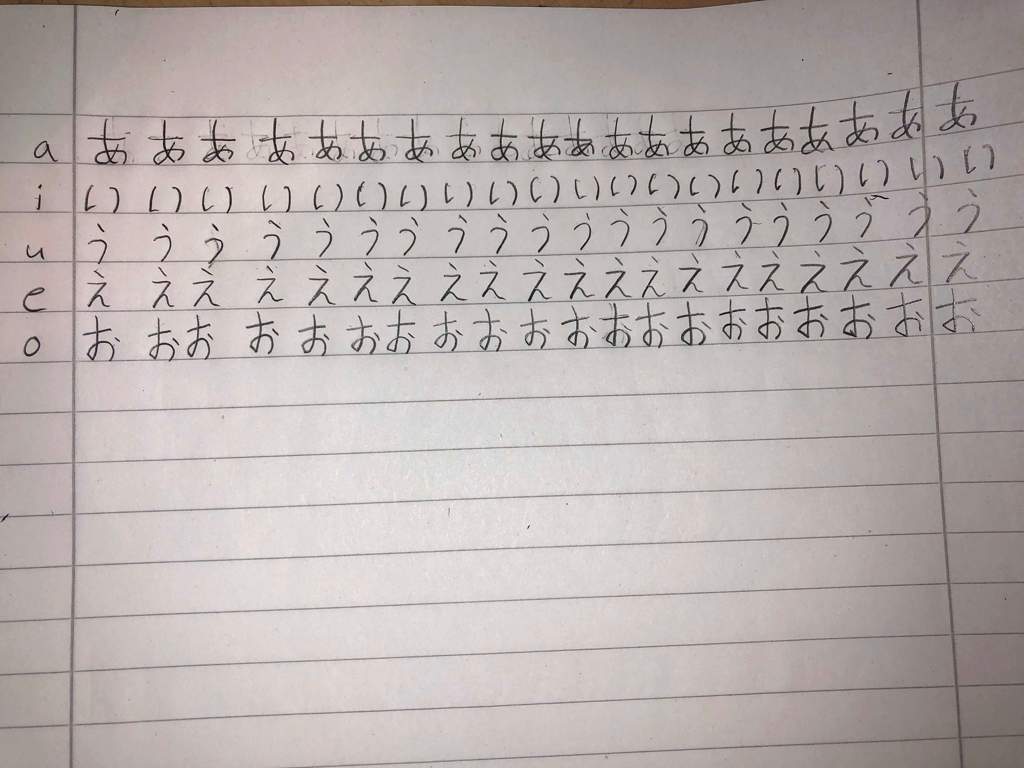 a あ あ あ あ あ あ あ あ あ あ あ あ あ あ あ あ あ あ あ あ
i い い い い い い い い い い い い い い い い い い い い
u う う う う う う う う う う う う う う う う う う う う
e え え え え え え え え え え え え え え え え え え え え
o お お お お お お お お お お お お お お お お お お お お